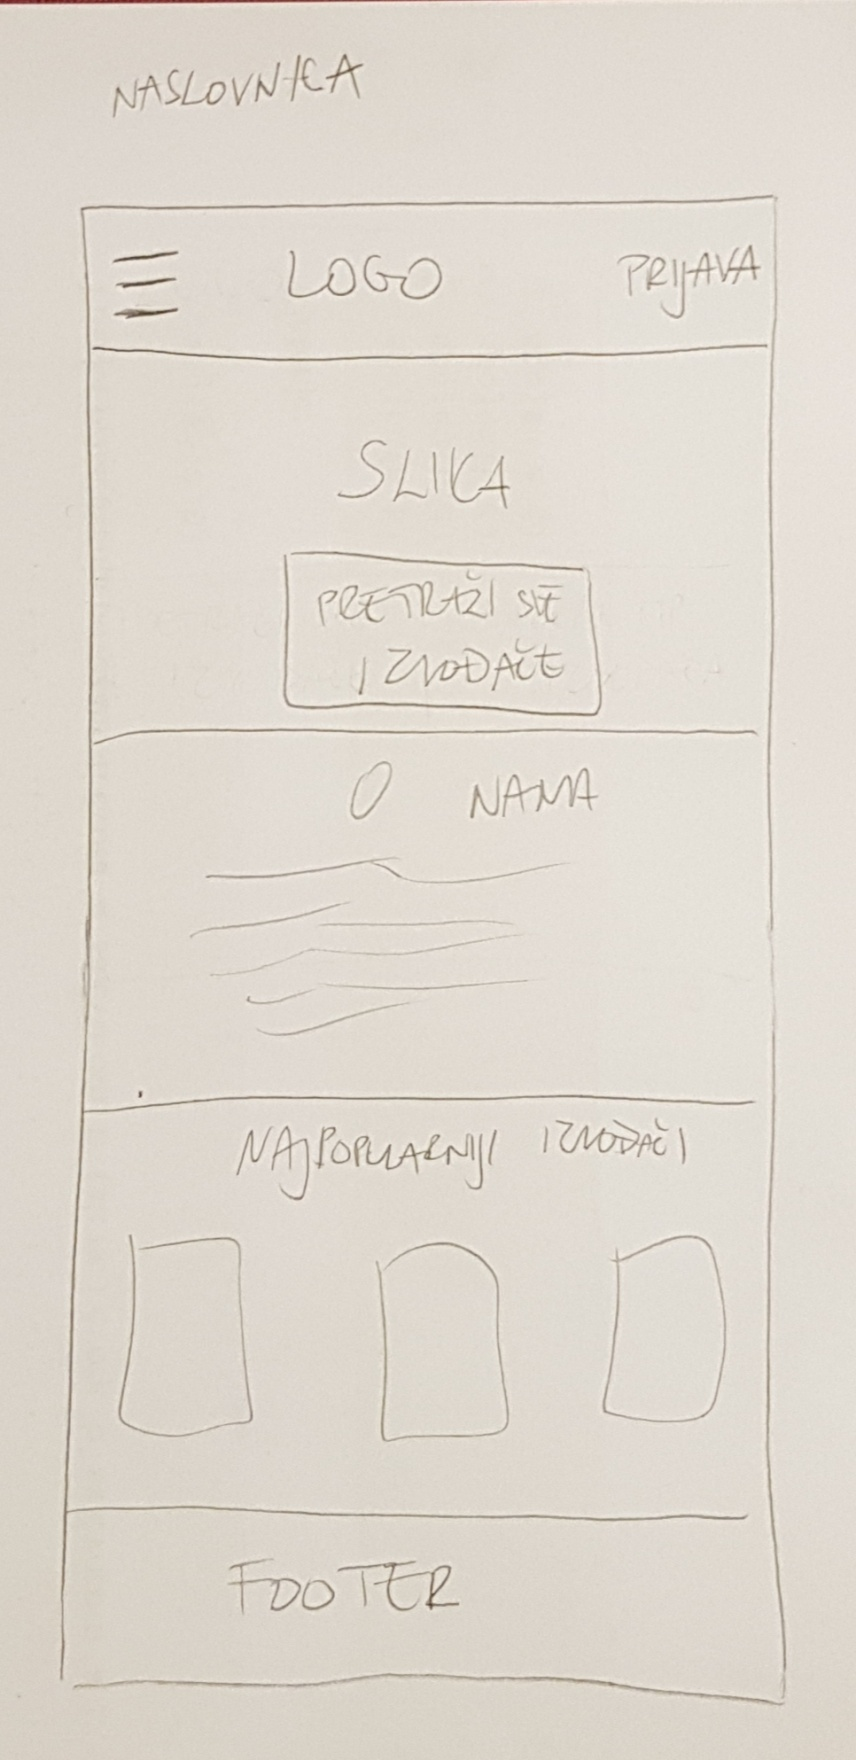 NASLOVNICA
LOGO
PRIJAVA
SLIKA
PRETRAŽI SVE
IZVOĐAČE
O NAMA
NAJPOPULARNIJI IZVOĐAČI
FOOTER